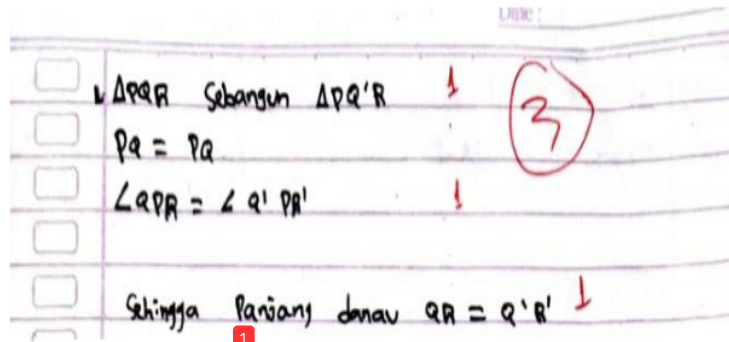 Date :
ΔPQR Sebangun ΔPQ'R 1
3
PQ = PQ
∠QPR = ∠Q'PR' 1
Sehingga Panjang danau QR = Q'R' 1
1